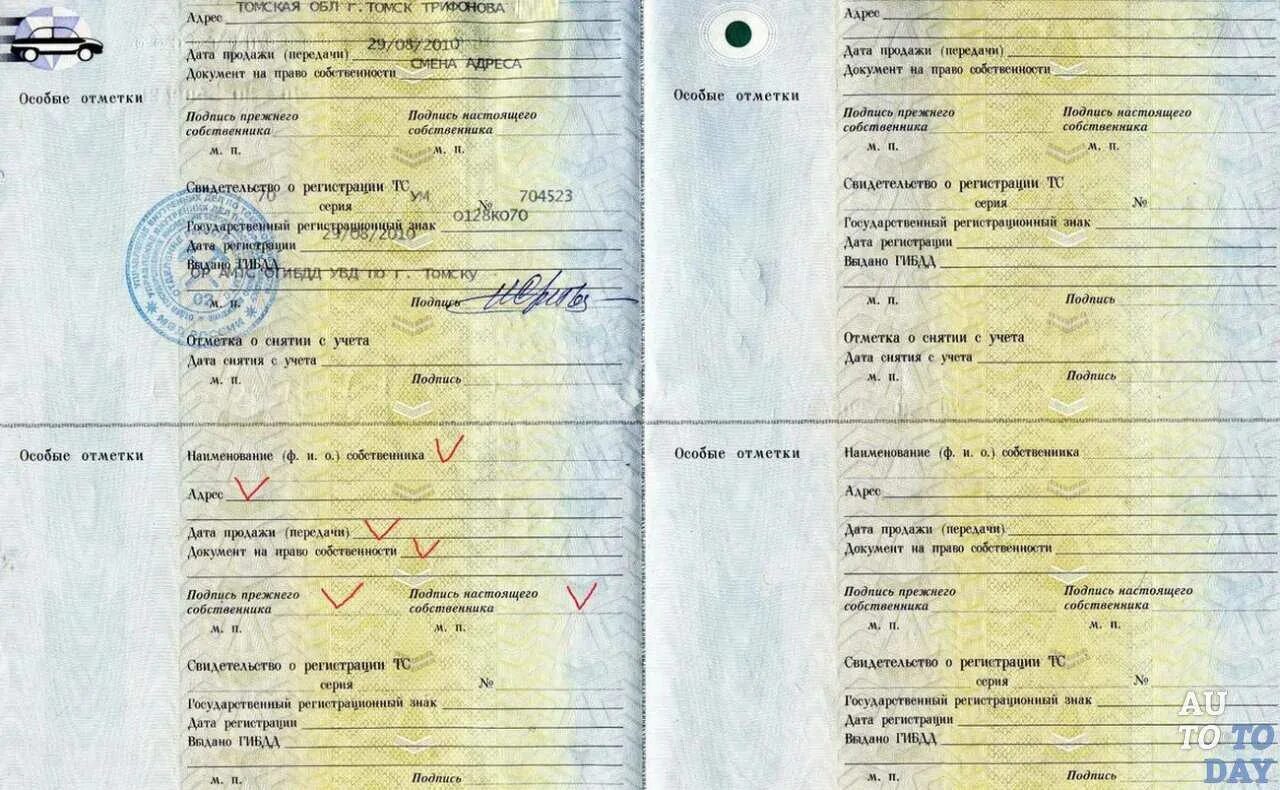 ТОМСКАЯ ОБЛ г.ТОМСК ТРИФОНОВА
Адрес
29/08/2010
Дата продажи (передачи)
СМЕНА АДРЕСА
Документ на право собственности
Особые отметки
Подпись прежнего собственника
Подпись настоящего собственника
м. п.
м. п.
Свидетельство о регистрации ТС
70 УМ 704523
серия №
О128КО70
Государственный регистрационный знак
29/08/2010
Дата регистрации
Выдано ГИБДД
ОГИБДД УВД ПО г. ТОМСКУ
м. п.
Подпись
Отметка о снятии с учета
Дата снятия с учета
м. п.
Подпись
Адрес
Дата продажи (передачи)
Документ на право собственности
Особые отметки
Подпись прежнего собственника
Подпись настоящего собственника
м. п.
м. п.
Свидетельство о регистрации ТС
серия №
Государственный регистрационный знак
Дата регистрации
Выдано ГИБДД
м. п.
Подпись
Отметка о снятии с учета
Дата снятия с учета
м. п.
Подпись
Особые отметки
Наименование (ф. и. о.) собственника
Адрес
Дата продажи (передачи)
Документ на право собственности
Подпись прежнего собственника
Подпись настоящего собственника
м. п.
м. п.
Свидетельство о регистрации ТС
серия №
Государственный регистрационный знак
Дата регистрации
Выдано ГИБДД
м. п.
Подпись
Особые отметки
Наименование (ф. и. о.) собственника
Адрес
Дата продажи (передачи)
Документ на право собственности
Подпись прежнего собственника
Подпись настоящего собственника
м. п.
м. п.
Свидетельство о регистрации ТС
серия №
Государственный регистрационный знак
Дата регистрации
Выдано ГИБДД
м. п.
Подпись
AU
TO TO
DAY